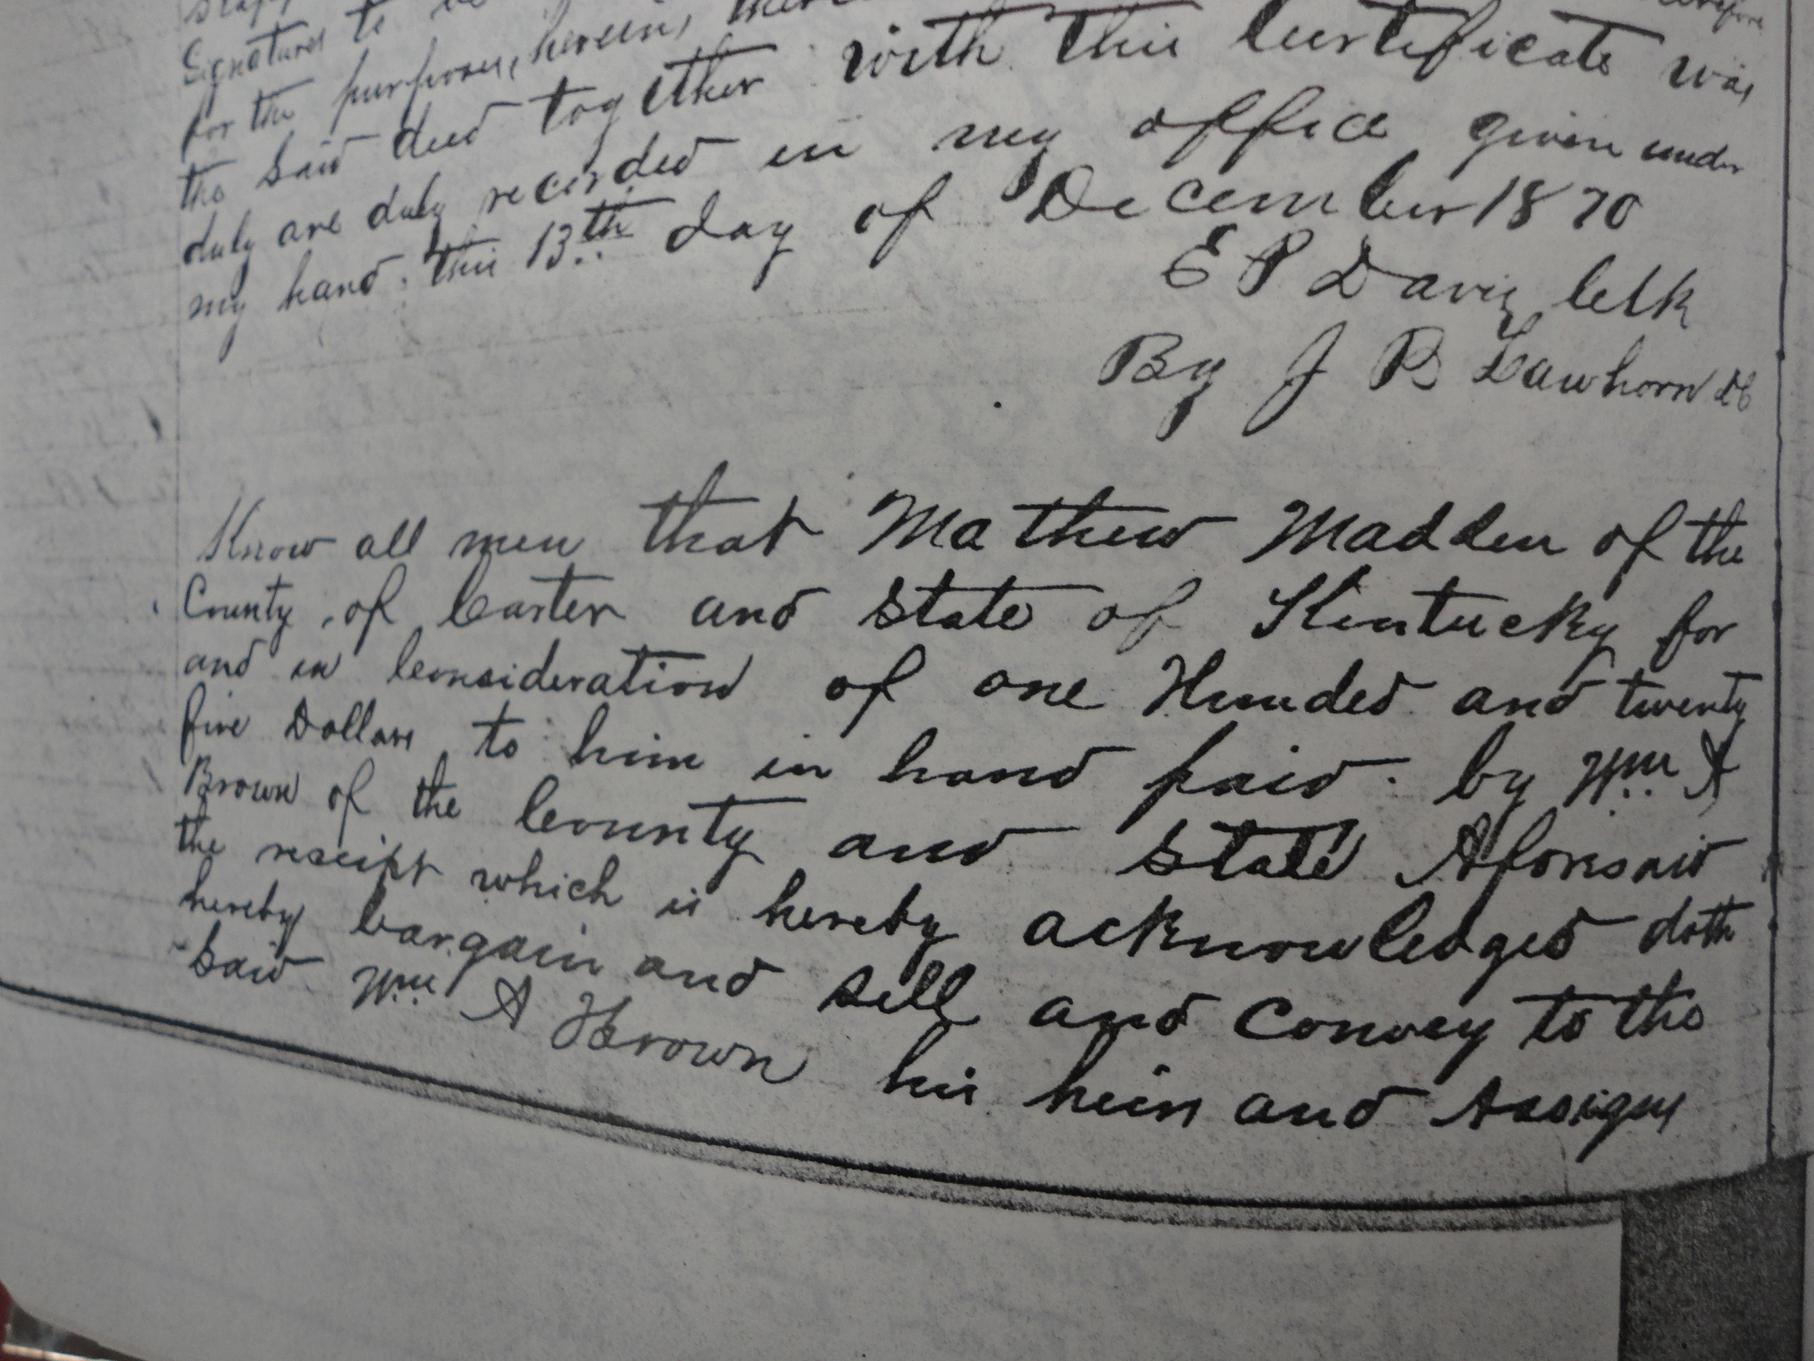 Signatures to
for the purposes, herein,
the said deed together with this Certificate was
duly are duly recorded in my office given under
my hand. this 13th day of December 1870
E P Davis Clk
By J B Lawhorn DC
Know all men that Mathew Madden of the
County of Carter and State of Kentucky for
and in Consideration of one Hunded and twenty
five Dollars to him in hand paid. by Wm A
Brown of the County and State Aforisaid
the receipt which is hereby acknowledged doth
hereby bargain and sell and Convey to the
said Wm A Brown his heirs and Assigns